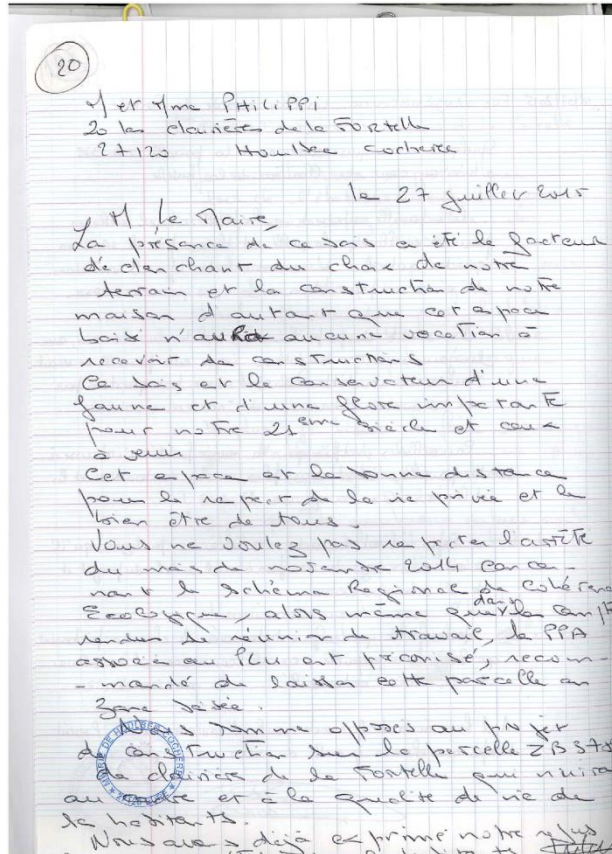 20
M et Mme PHILIPPI
20 les clairières de la FORTELLE
27120 Houlbec cocherel
le 27 juillet 2015
M le Maire,
La présence de ce bois a été le facteur
déclenchant du choix de notre
terrain et la construction de notre
maison d'autant que cet espace
boisé n'au aucune vocation à
recevoir de constructions
Ce bois est le conservateur d'une
faune et d'une flore importante
pour notre 21ème siècle et ceux
à venir
Cet espace est la bonne distance
pour le respect de la vie privée et le
bien être de tous.
Vous ne voulez pas respecter l'arrêté
du mois de novembre 2014 concer-
nant le Schéma Régional de Cohérence
Ecologique, alors même que dans les compte
rendus de réunion de travail, la PPA
associée au PLU ont préconisé, recom-
-mandé de laisser cette parcelle en
zone boisée.
Nous somme opposés au projet
de construction sur la parcelle ZB 375
la clairière de la Fortelle qui nuira
au cadre et à la qualité de vie de
la habitants.
Nous avons déjà exprimé notre refus